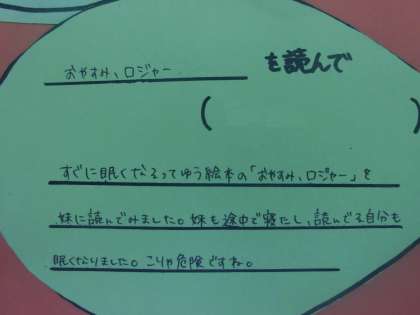 おやすみ、ロジャー を読んで
(　　　　)
すぐに眠くなるってゆう絵本の「おやすみ、ロジャー」を
妹に読んでみました。妹も途中で寝たし、読んでる自分も
眠くなりました。こりゃ危険ですね。